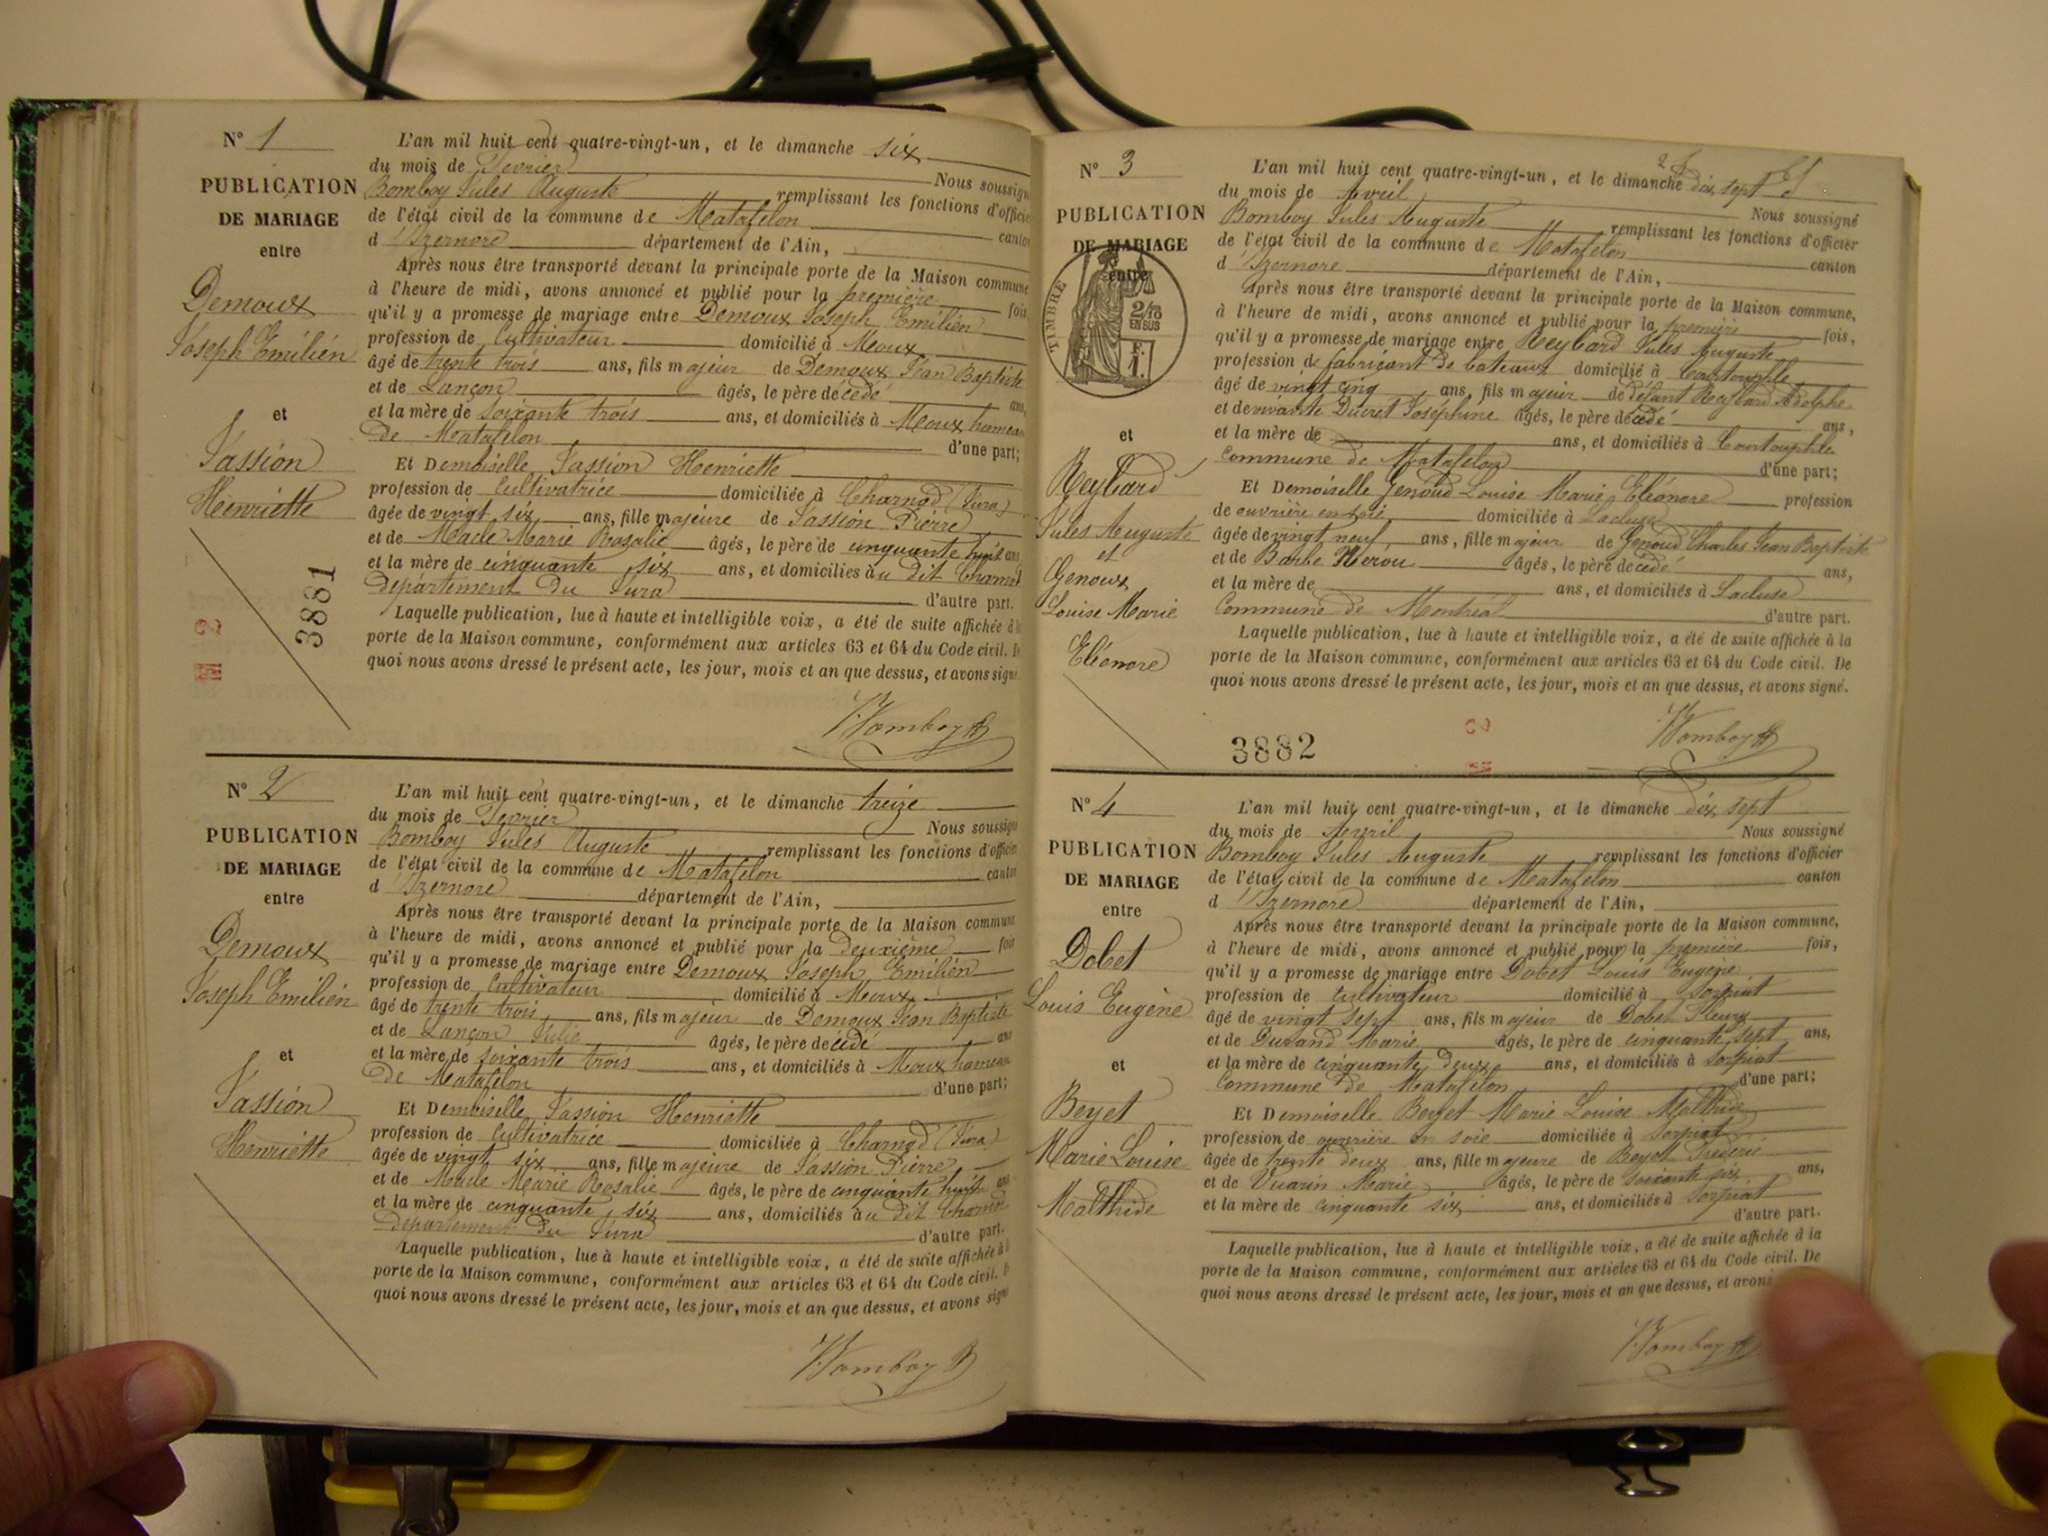 N° 1
PUBLICATION
DE MARIAGE
entre
Demoux
Joseph Emilien
et
Tassion
Henriette
3881
L'an mil huit cent quatre-vingt-un, et le dimanche six
du mois de Fevrier Nous soussigné
Bomboy Jules Auguste remplissant les fonctions d'officier
de l'état civil de la commune de Matafelon canton
d'Izernore département de l'Ain,
Après nous être transporté devant la principale porte de la Maison commune
à l'heure de midi, avons annoncé et publié pour la première fois
qu'il y a promesse de mariage entre Demoux Joseph Emilien
profession de Cultivateur domicilié à Meoux
âgé de trente trois ans, fils majeur de Demoux Jean Baptiste
et de Lançon âgés, le père de cédé ans,
et la mère de soixante trois ans, et domiciliés à Meoux hameau
de Matafelon d'une part;
Et Demoiselle Tassion Henriette
profession de Cultivatrice domiciliée à Charnod (Jura)
âgée de vingt six ans, fille majeure de Tassion Pierre
et de Macle Marie Rosalie âgés, le père de cinquante huit ans
et la mère de cinquante six ans, et domiciliés au dit Charnod
département du Jura d'autre part.
Laquelle publication, lue à haute et intelligible voix, a été de suite affichée à la
porte de la Maison commune, conformément aux articles 63 et 64 du Code civil. De
quoi nous avons dressé le présent acte, les jour, mois et an que dessus, et avons signé.
Bomboy
N° 2
PUBLICATION
DE MARIAGE
entre
Demoux
Joseph Emilien
et
Tassion
Henriette
L'an mil huit cent quatre-vingt-un, et le dimanche treize
du mois de Fevrier Nous soussigné
Bomboy Jules Auguste remplissant les fonctions d'officier
de l'état civil de la commune de Matafelon canton
d'Izernore département de l'Ain,
Après nous être transporté devant la principale porte de la Maison commune
à l'heure de midi, avons annoncé et publié pour la deuxième fois
qu'il y a promesse de mariage entre Demoux Joseph Emilien
profession de Cultivateur domicilié à Meoux
âgé de trente trois ans, fils majeur de Demoux Jean Baptiste
et de Lançon Julie âgés, le père de cédé ans
et la mère de soixante trois ans, et domiciliés à Meoux hameau
de Matafelon d'une part;
Et Demoiselle Tassion Henriette
profession de Cultivatrice domiciliée à Charnod (Jura)
âgée de vingt six ans, fille majeure de Tassion Pierre
et de Macle Marie Rosalie âgés, le père de cinquante huit ans
et la mère de cinquante six ans, domiciliés au dit Charnod
département du Jura d'autre part.
Laquelle publication, lue à haute et intelligible voix, a été de suite affichée à la
porte de la Maison commune, conformément aux articles 63 et 64 du Code civil. De
quoi nous avons dressé le présent acte, les jour, mois et an que dessus, et avons signé
Bomboy
N° 3
PUBLICATION
DE MARIAGE
entre
TIMBRE
2/10
EN SUS
F.
1.
et
Reybard
Jules Auguste
et
Genoux
Louise Marie
Eléonore
L'an mil huit cent quatre-vingt-un, et le dimanche dix sept
du mois de Avril Nous soussigné
Bomboy Jules Auguste remplissant les fonctions d'officier
de l'état civil de la commune de Matafelon canton
d'Izernore département de l'Ain,
Après nous être transporté devant la principale porte de la Maison commune,
à l'heure de midi, avons annoncé et publié pour la première fois,
qu'il y a promesse de mariage entre Reybard Jules Auguste
profession de fabricant de bateaux domicilié à Courtouphle
âgé de vingt cinq ans, fils majeur de défunt Reybard Adolphe
et de vivante Ducret Joséphine âgés, le père de cédé ans,
et la mère de ans, et domiciliés à Courtouphle
Commune de Matafelon d'une part;
Et Demoiselle Genoud Louise Marie Eléonore profession
de ouvrière en soie domiciliée à Lacluse
âgée de vingt neuf ans, fille majeur de Genoud Charles Jean Baptiste
et de Barbe âgés, le père de cédé ans,
et la mère de ans, et domiciliés à Lacluse
Commune de Montréal d'autre part.
Laquelle publication, lue à haute et intelligible voix, a été de suite affichée à la
porte de la Maison commune, conformément aux articles 63 et 64 du Code civil. De
quoi nous avons dressé le présent acte, les jour, mois et an que dessus, et avons signé.
Bomboy
3882
N° 4
PUBLICATION
DE MARIAGE
entre
Dobet
Louis Eugène
et
Beyet
Marie Louise
Malthide
L'an mil huit cent quatre-vingt-un, et le dimanche dix sept
du mois de Avril Nous soussigné
Bomboy Jules Auguste remplissant les fonctions d'officier
de l'état civil de la commune de Matafelon canton
d'Izernore département de l'Ain,
Après nous être transporté devant la principale porte de la Maison commune,
à l'heure de midi, avons annoncé et publié pour la première fois,
qu'il y a promesse de mariage entre Dobet Louis Eugène
profession de cultivateur domicilié à Sorpiat
âgé de vingt sept ans, fils majeur de Dobet Fleury
et de Durand Marie âgés, le père de cinquante sept ans,
et la mère de cinquante deux ans, et domiciliés à Sorpiat
Commune de Matafelon d'une part;
Et Demoiselle Beyet Marie Louise Malthide
profession de ouvrière en soie domiciliée à Sorpiat
âgée de trente deux ans, fille majeure de Beyet Frédéric
et de Vuarin Marie âgés, le père de soixante six ans,
et la mère de cinquante six ans, et domiciliés à Sorpiat
d'autre part.
Laquelle publication, lue à haute et intelligible voix, a été de suite affichée à la
porte de la Maison commune, conformément aux articles 63 et 64 du Code civil. De
quoi nous avons dressé le présent acte, les jour, mois et an que dessus, et avons
Bomboy